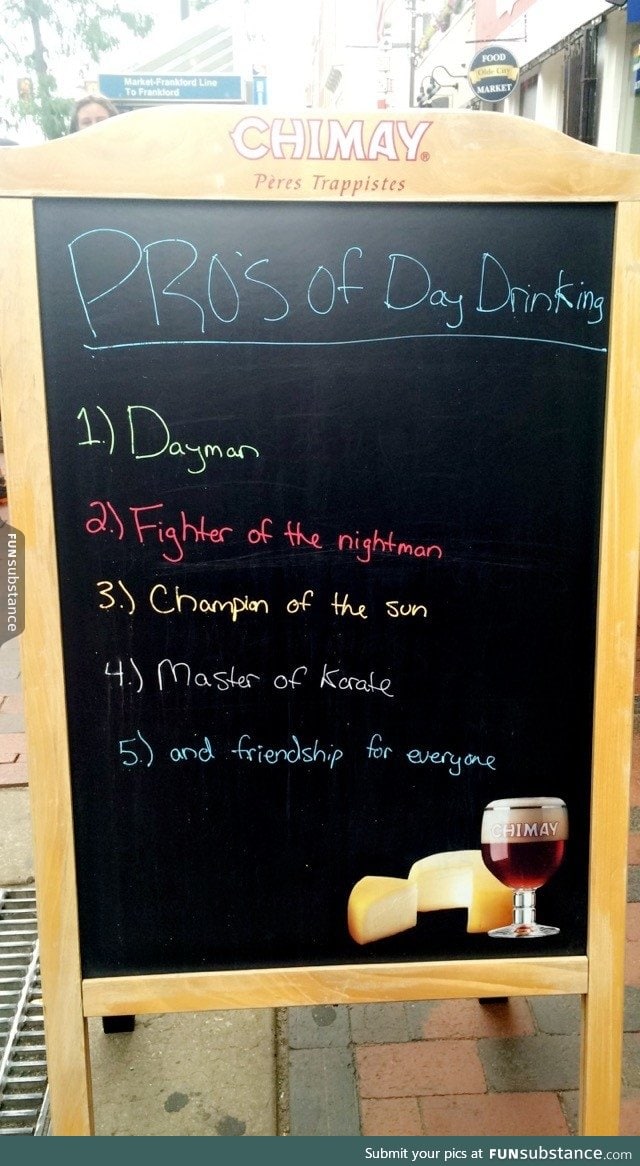 Market-Frankford Line
To Frankford
FOOD
Olde City
MARKET
CHIMAY®
Pères Trappistes
PRO'S Of Day Drinking
1.) Dayman
2.) Fighter of the nightman
3.) Champion of the sun
4.) Master of Karate
5.) and friendship for everyone
CHIMAY
FUNsubstance
Submit your pics at FUNsubstance.com